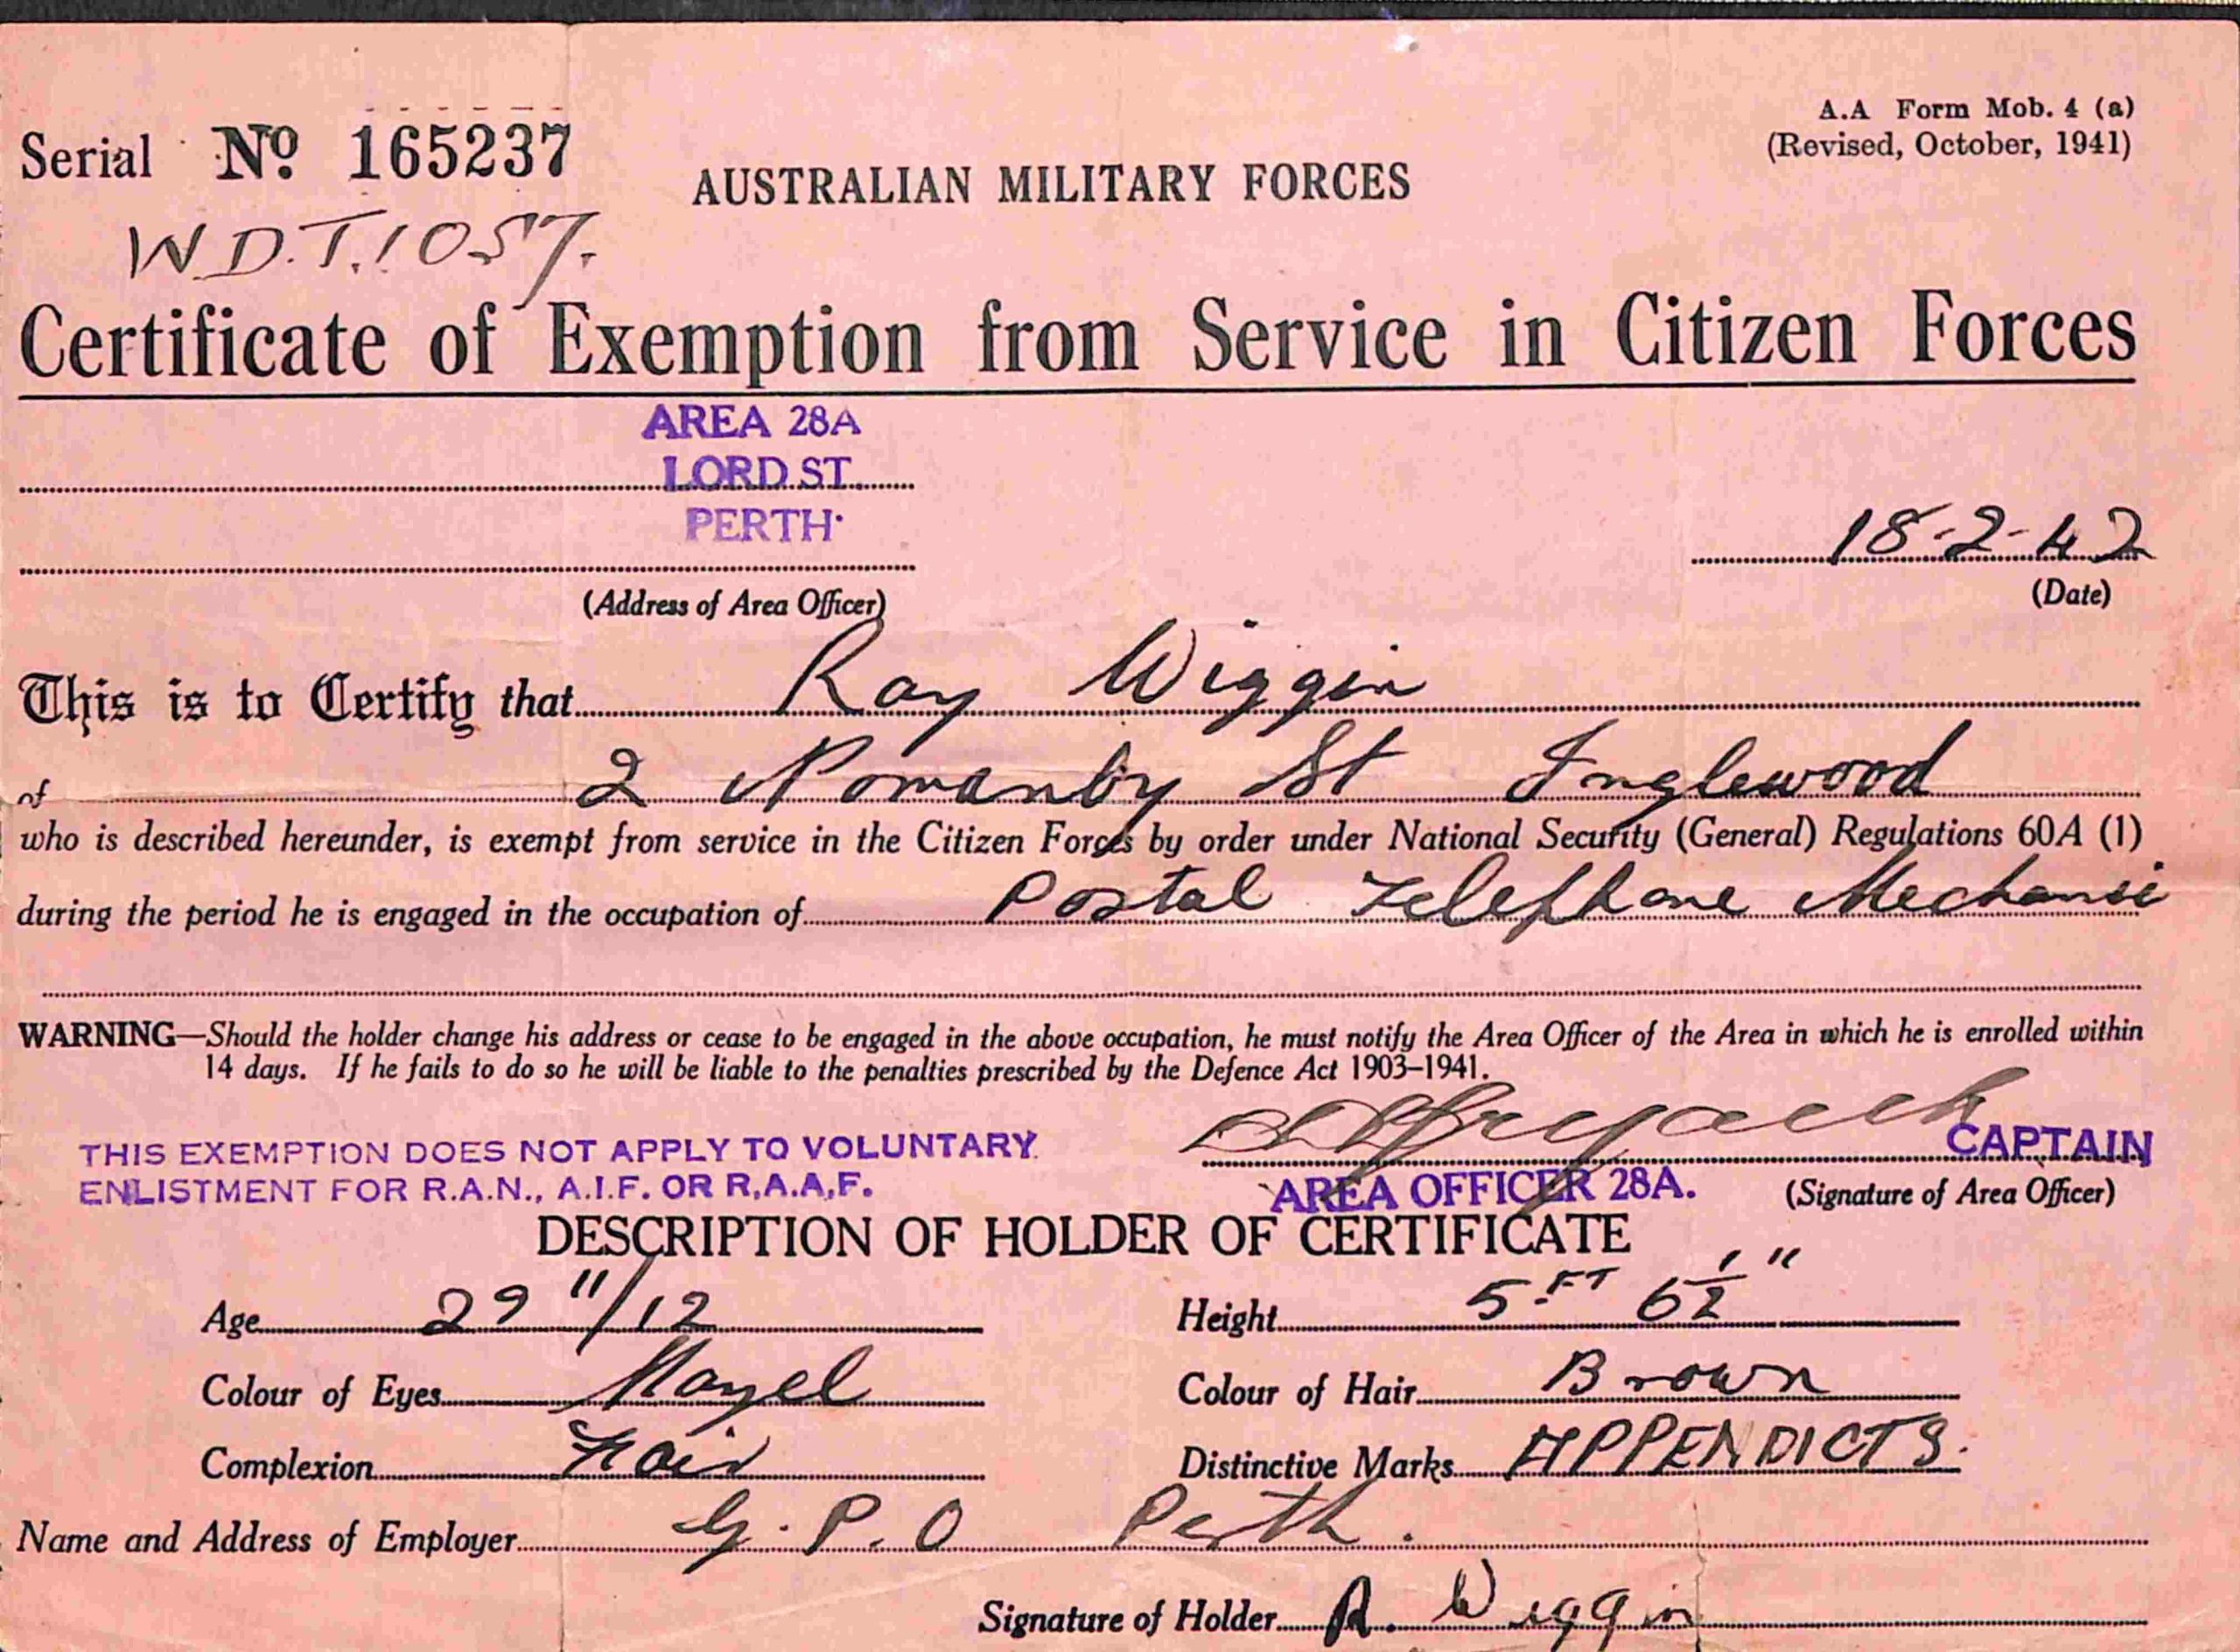 A.A Form Mob. 4 (a)
(Revised, October, 1941)
Serial No 165237
AUSTRALIAN MILITARY FORCES
W.D.T.1057.
Certificate of Exemption from Service in Citizen Forces
AREA 28A
LORD ST
PERTH
18-2-42
(Address of Area Officer)
(Date)
This is to Certify that Ray Wiggin
of 2 Nomanby St Inglewood
who is described hereunder, is exempt from service in the Citizen Forces by order under National Security (General) Regulations 60A (1)
during the period he is engaged in the occupation of Postal Telephone Mechanic
WARNING—Should the holder change his address or cease to be engaged in the above occupation, he must notify the Area Officer of the Area in which he is enrolled within
14 days. If he fails to do so he will be liable to the penalties prescribed by the Defence Act 1903–1941.
THIS EXEMPTION DOES NOT APPLY TO VOLUNTARY
ENLISTMENT FOR R.A.N., A.I.F. OR R.A.A.F.
CAPTAIN
AREA OFFICER 28A.
(Signature of Area Officer)
DESCRIPTION OF HOLDER OF CERTIFICATE
Age 29 11/12 Height 5 FT 6 1/2 "
Colour of Eyes Hazel Colour of Hair Brown
Complexion Fair Distinctive Marks APPENDICTS.
Name and Address of Employer G.P.O Perth.
Signature of Holder R. Wiggin